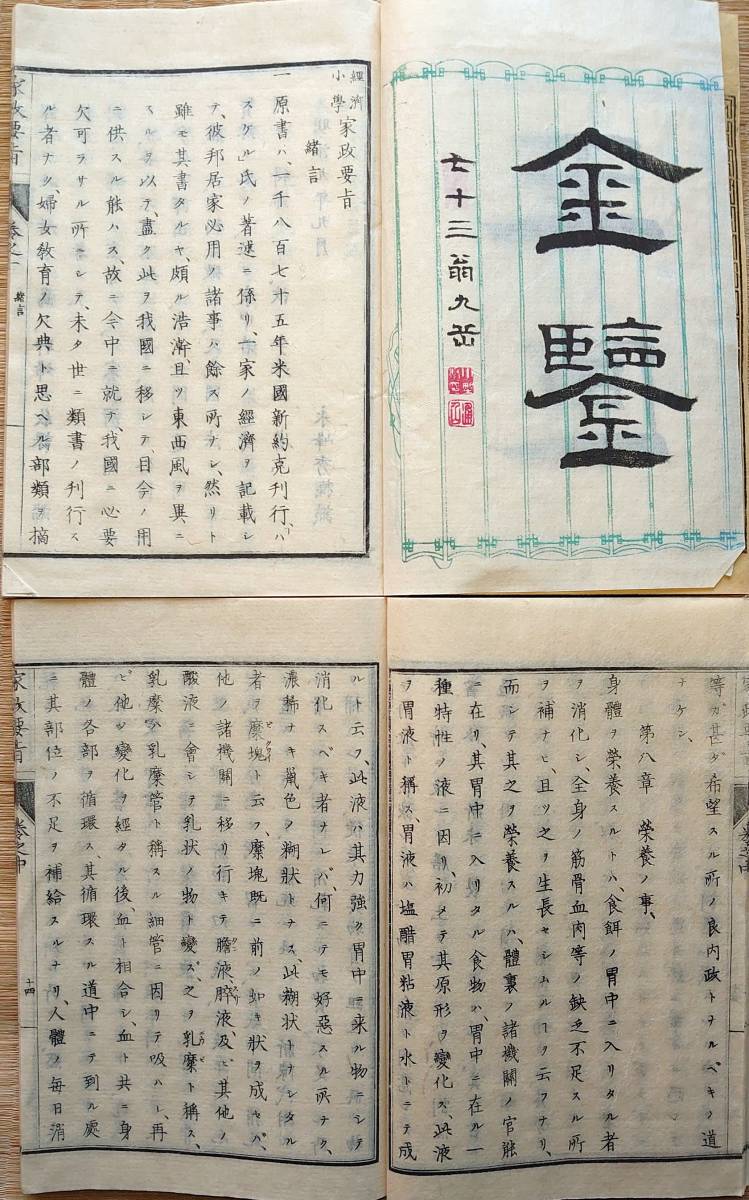 金鑒
七十三翁九岳
經濟小學家政要旨
緒言
一原書ハ、一千八百七十五年米國新約克刊行、「ハ
スケル」氏ノ著述ニ係リ、一家ノ經濟ヲ記載シ
テ、彼邦居家必用ノ諸事ハ餘ス所ナシ、然リト
雖モ其書タルヤ、頗ル浩澣、且ツ東西風ヲ異ニ
スルヲ以テ、盡ク此ヲ我國ニ移シテ日今ノ用
ニ供スル能ハス、故ニ今中ニ就テ、我國ニ必要
欠可ラサル所ニシテ、未タ世ニ類書ノ刊行ス
ル者ナク、婦女敎育ノ欠典ト思ヘル部類ヲ摘
家政要旨
卷之一
緒言
等ガ甚ダ希望スル所ノ良內政トナルベキノ道
ナケン、
第八章 榮養ノ事、
身體ヲ榮養スルトハ、食餌ノ胃中ニ入リタル者
ヲ消化シ、全身ノ筋骨血肉等ノ缺乏不足スル所
ヲ補ナヒ、且ツ之ヲ生長セシムルヿヲ云フナリ、
而シテ其之ヲ榮養スルハ、體裏ノ諸機關ノ官能
ニ在リ、其胃中ニ入リタル食物ハ、胃中ニ在ル一
種特性ノ液ニ因リ、初メテ其原形ヲ變化ス、此液
ヲ胃液ト稱ス、胃液ハ塩醋胃粘液ト水トニテ成
ルト云フ、此液ハ其力強ク胃中ニ來ル物ニシテ
消化スベキ者ナレバ、何ニテモ好惡スル所ナク、
濃稀ナキ鼠色ノ糊狀トナス、此糊狀トナシタル
者ヲ糜塊ト云フ、糜塊旣ニ前ノ如キ狀ヲ成セバ、
他ノ諸機關ニ移リ行キテ膽液、膵液、及ビ其他ノ
酸液ニ會シテ乳狀ノ物ト變ズ、之ヲ乳糜ト稱ス、
乳糜ハ乳糜管ト稱スル細管ニ因リテ吸ハレ、再
ビ他ノ變化ヲ經タル後、血ト相合シ、血ト共ニ身
體ノ各部ヲ循環ス、其循環スル道中ニテ到ル處
ニ其部位ノ不足ヲ補給スルナリ、人體ノ每日消
家政要旨
卷之中
十四